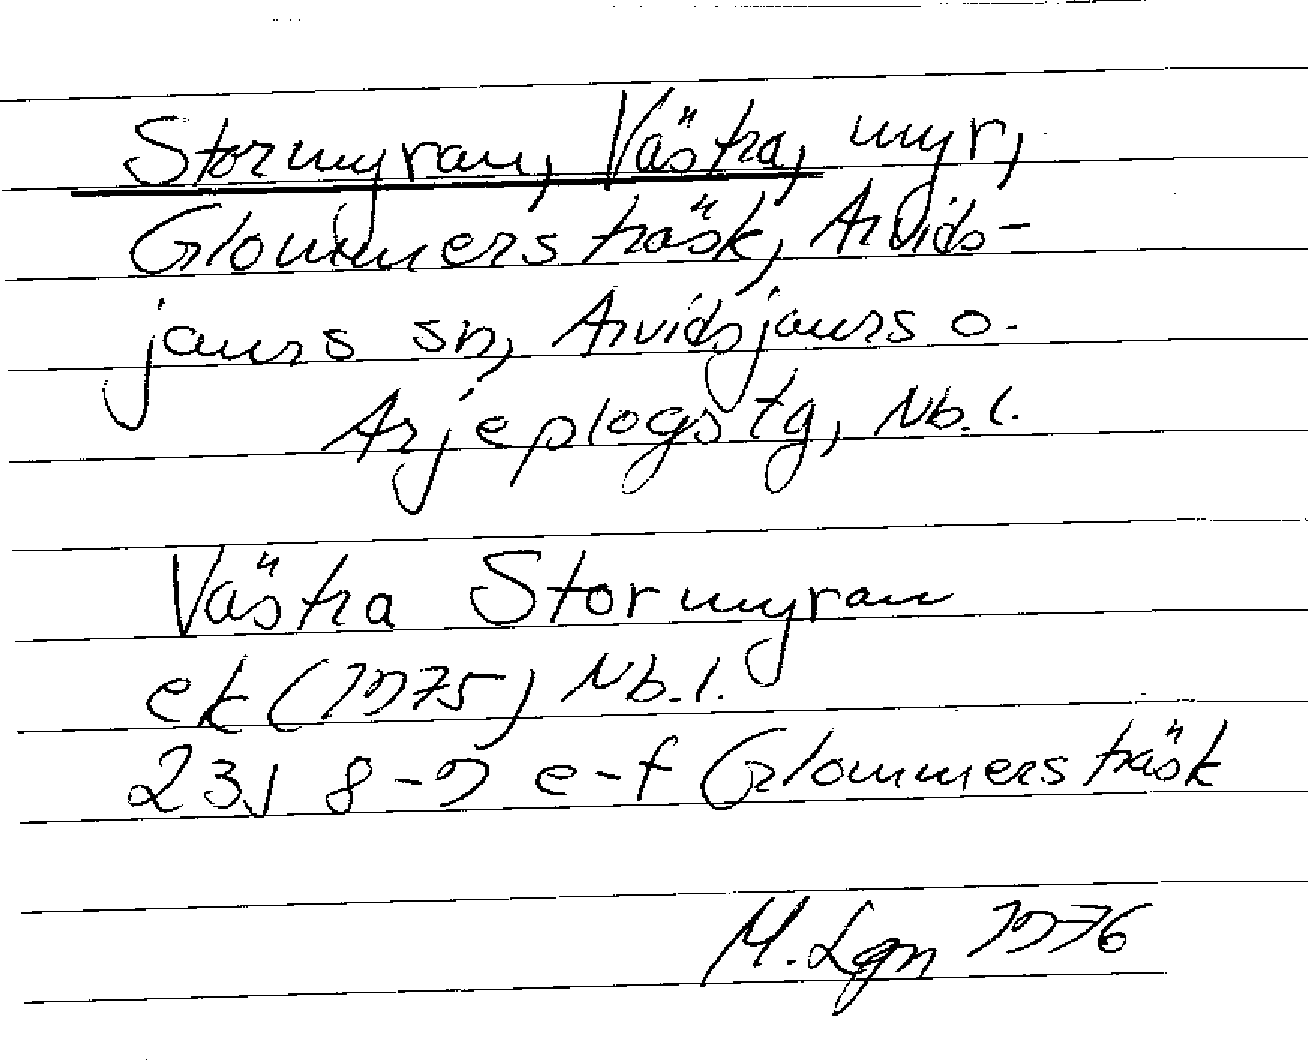 Stormyran, Västra, myr,
Glommersträsk, Arvids-
jaurs sn, Arvidsjaurs o.
Arjeplogs tg, Nb. l.
Västra Stormyran
ek (1975) Nb. l.
23J 8-9 e-f Glommersträsk
M. Lgn 1976